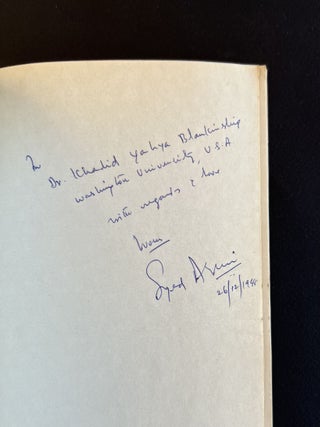 To
Dr. Khalid Yahya Blankinship
Washington University, U.S.A.
with regards & love
from
Syed
26/12/19